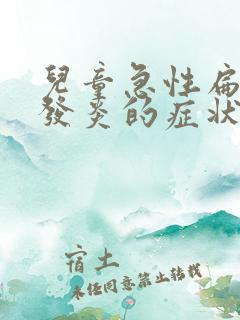 兒童急性扁
發炎的症狀
宿土
未经同意禁止转载